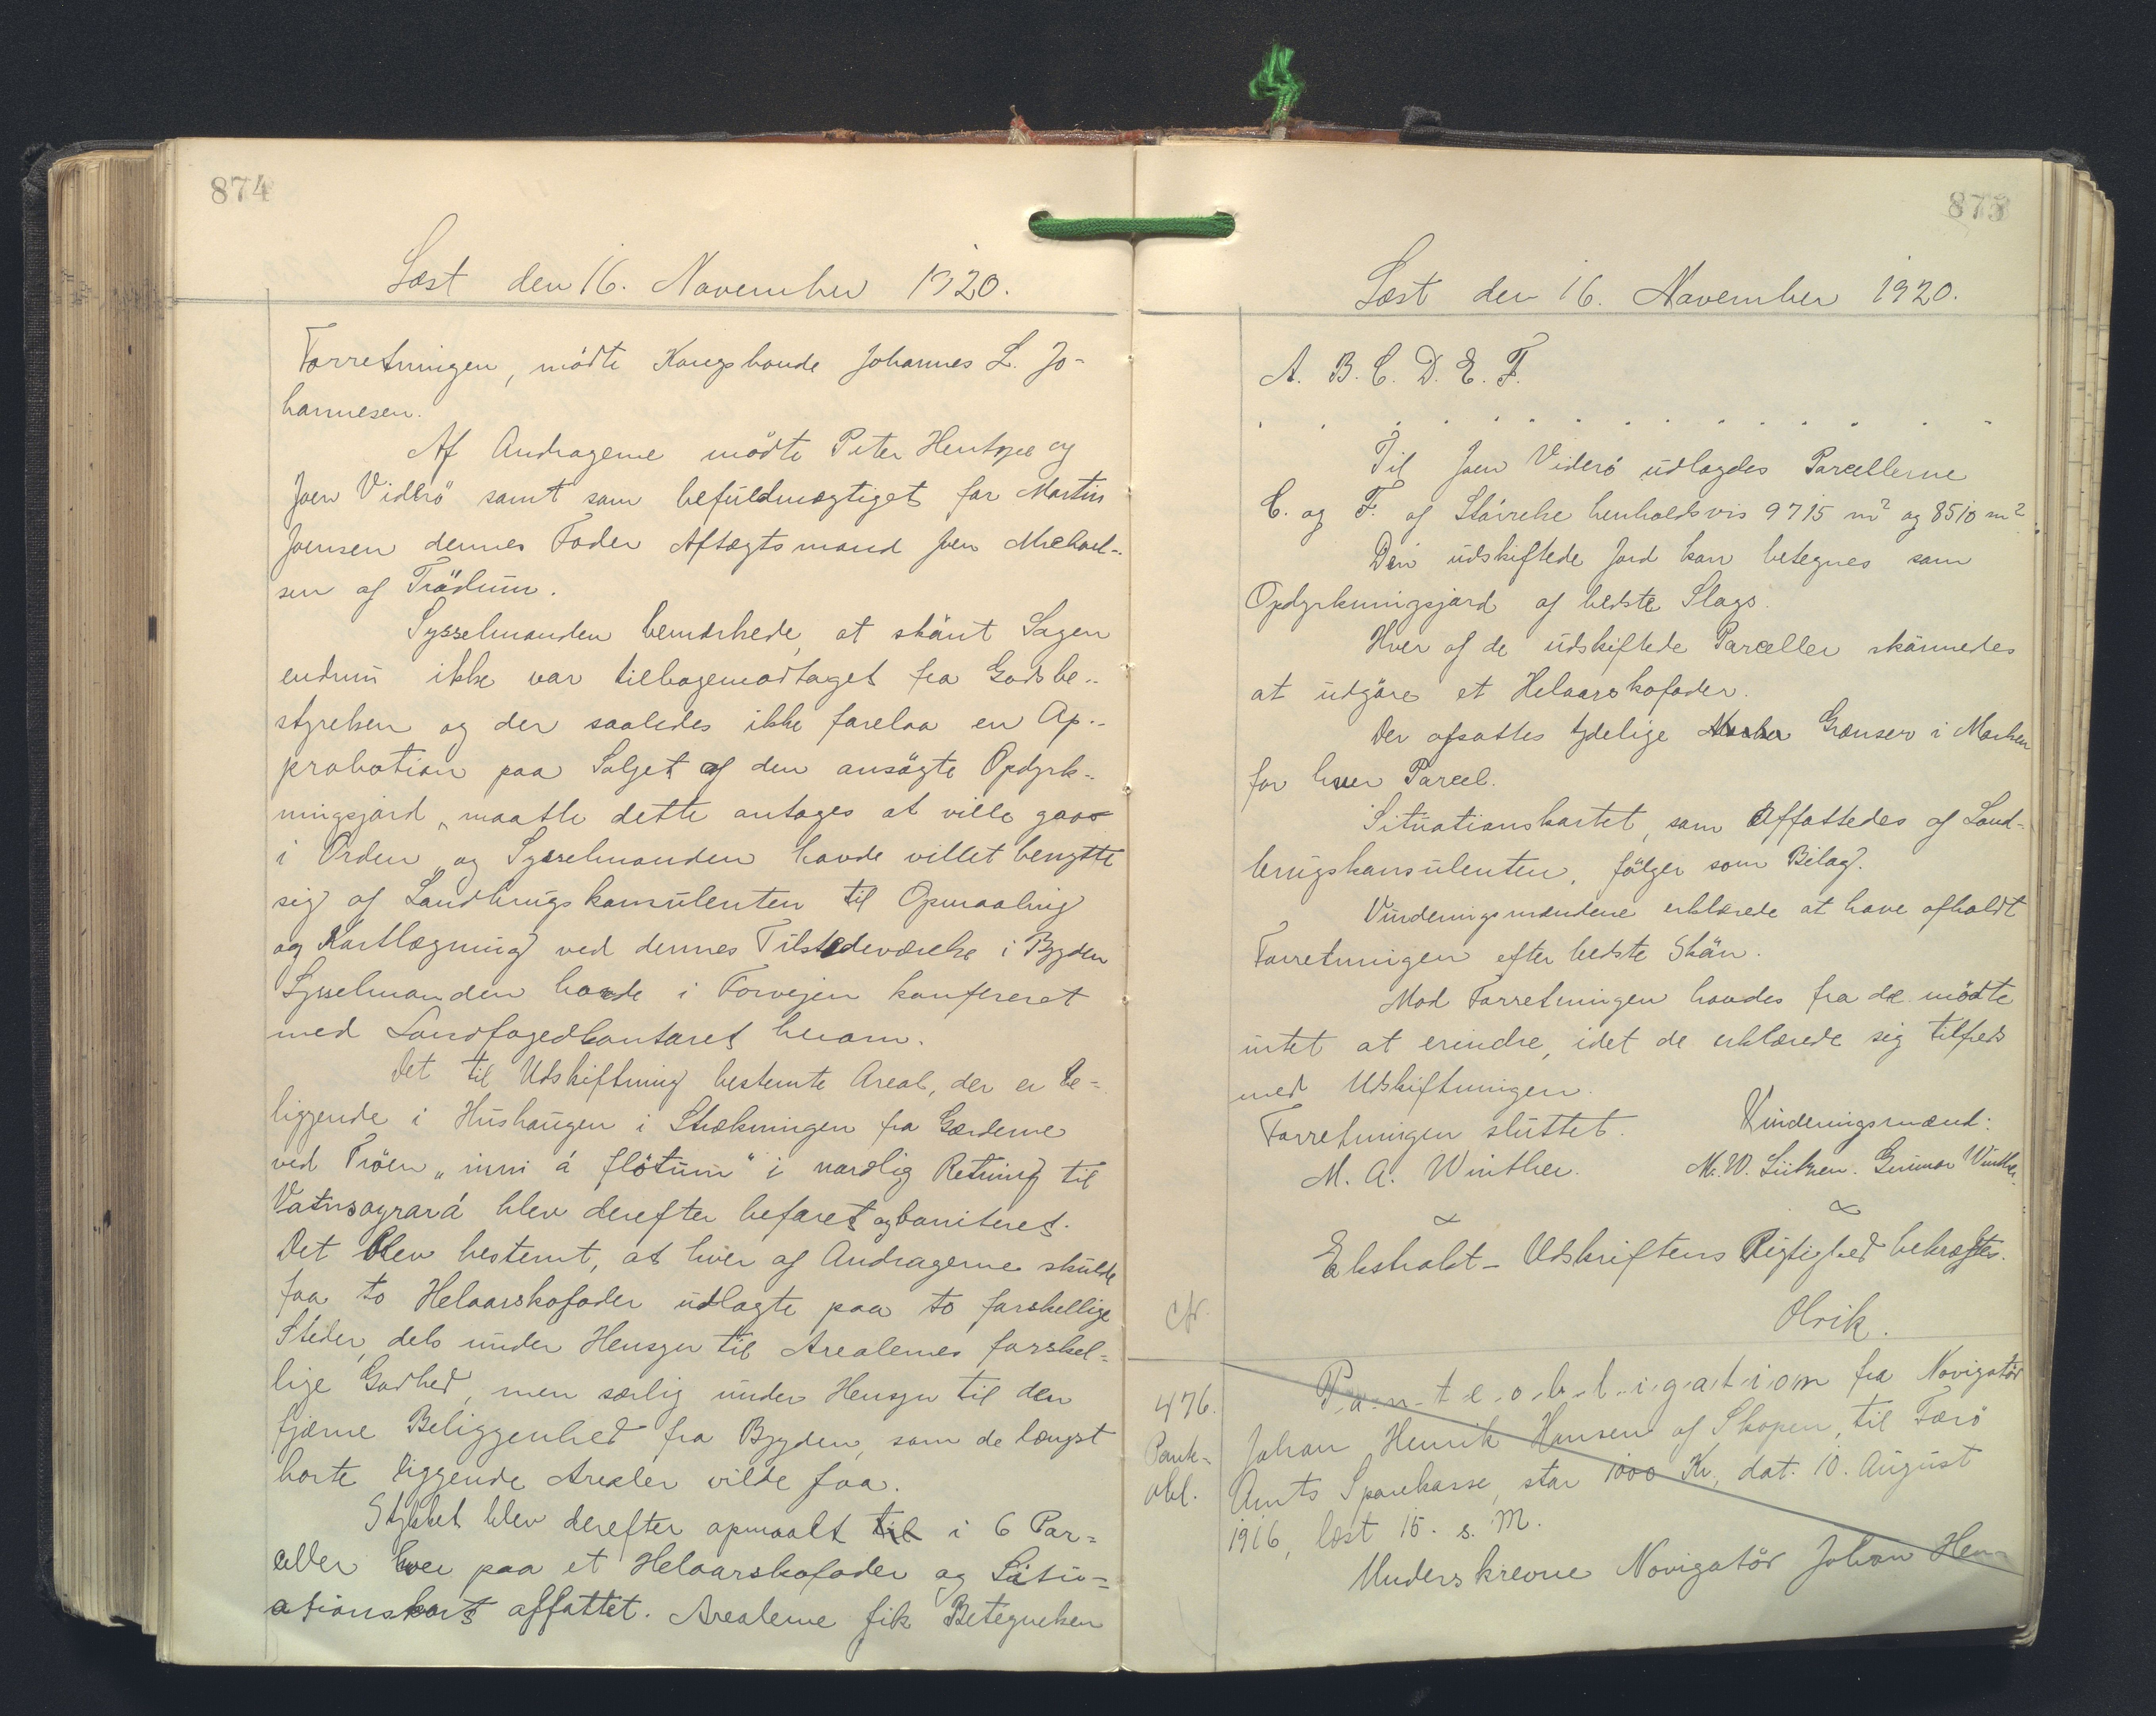 874
Læst den 16. November 1920.
Forretningen, mödte Kongsbonde Johannes L. Jo-
hannesen.
Af Andragerne mödte Peter Hentze og
Joen Viderö samt som befuldmægtiget for Martin
Joensen dennes Fader Aftægtsmand Joen Michael-
sen af Tröðum.
Sysselmanden bemærkede, at skönt Sagen
endnu ikke var tilbagemodtaget fra Godsbe-
styrelsen og der saaledes ikke forelaa en Ap-
probation paa Salget af den ansögte Opdyrk-
ningsjord, maatte dette antages at ville gaa
i Orden og Sysselmanden havde villet benytte
sig af Landbrugskonsulenten til Opmaaling
og Kartlægning ved dennes Tilstedeværelse i Bygden
Sysselmanden havde i Forvejen konfereret
med Landfogedkontoret herom.
Det til Udskiftning bestemte Areal, der er be-
liggende i Húshaugen i Strækningen fra Gærderne
ved Tröen „inni á flötum" i nordlig Retning til
Vatnsoyrará blev derefter befaret og boniteret.
Det blev bestemt, at hver af Andragerne skulde
faa to Helaarskofoder udlagte paa to forskellige
Steder, dels under Hensyn til Arealernes forskel-
lige Godhed, men særlig under Hensyn til den
fjærne Beliggenhed fra Bygden, som de længst
borte liggende Arealer vilde faa.
Stykket blev derefter opmaalt til i 6 Par-
celler hver paa et Helaarskofoder og Situ-
ationskort affattet. Arealerne fik Betegnelsen
873
Læst den 16. November 1920.
A. B. C. D. E. F.
. . . . . . . . . . . . . . . . .
Til Joen Viderö udlagdes Parcellerne
C. og F. af Störrelse henholdsvis 9715 m² og 8510 m².
Den udskiftede Jord kan betegnes som
Opdyrkningsjord af bedste Slags.
Hver af de udskiftede Parceller skönnedes
at udgöre et Helaarskofoder.
Der afsattes tydelige Grænser i Marken
for hver Parcel.
Situationskortet, som affattedes af Land-
brugskonsulenten, fölger som Bilag.
Vurderingsmændene erklærede at have afholdt
Forretningen efter bedste Skön.
Mod Forretningen havdes fra de mödte
intet at erindre, idet de erklærede sig tilfreds
med Udskiftningen.
Forretningen sluttet. Vurderingsmænd:
M. A. Winther. M. W. Lützen. Gunnar Winther.
Ekstrakt-Udskriftens Rigtighed bekræftes.
Olrik.
cfr.
476.
Pant-
obl.
Panteobligation fra Navigatör
Johan Henrik Hansen af Skopen, til Færö
Amts Sparekasse, stor 1000 Kr., dat. 10. August
1916, læst 15. s. M.
Underskrevne Navigatör Johan Hen-